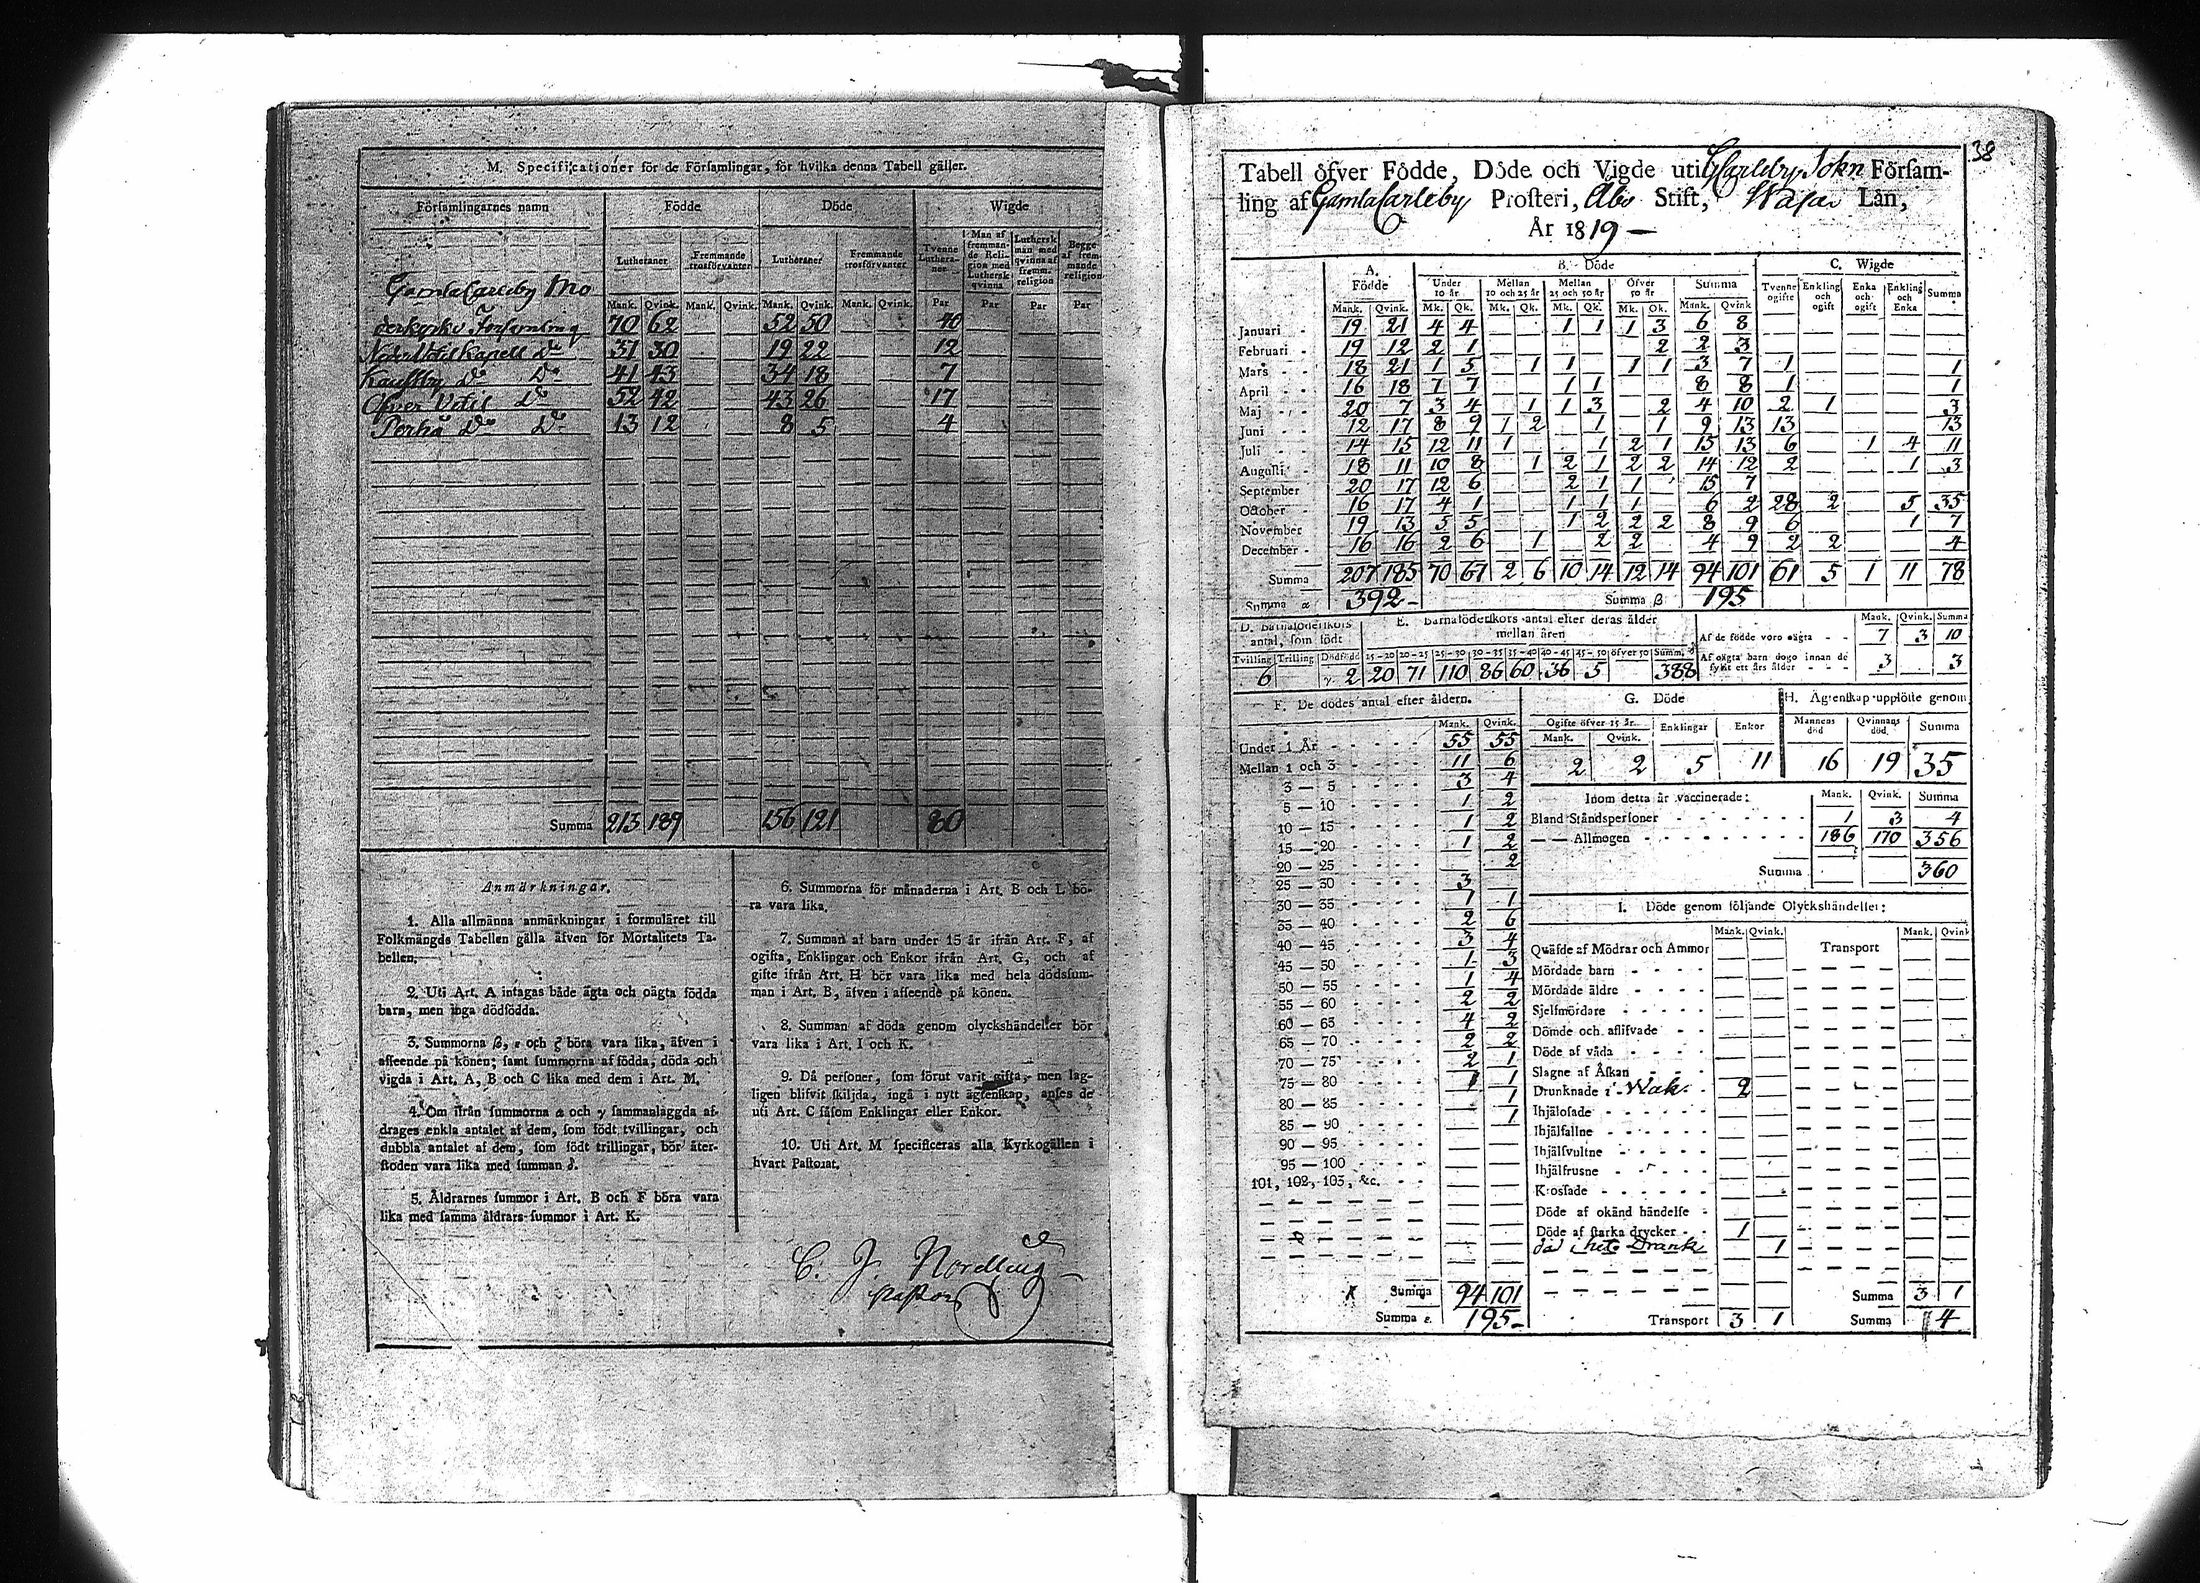 M. Specificationer för de Församlingar, för hvilka denna Tabell gäller.
Församlingarnes namn Födde Döde Wigde
Lutheraner Fremmande trosförvanter Lutheraner Fremmande trosförvanter Tvenne Lutheraner Man af fremmande Religion med Luthersk qvinna Luthersk man med qvinna af fremm. religion Begge af fremmande religion
Mank. Qvink. Mank. Qvink. Mank. Qvink. Mank. Qvink. Par Par Par Par
GamlaCarleby Mo
derkyrko Församling 70 62 52 50 40
Neder Vetil Kapell Do 31 30 19 22 12
Kaustby Do Do 41 43 34 18 7
Öfver Vetil Do 52 42 43 26 17
Perho Do Do 13 12 8 5 4
Summa 213 189 156 121 80
Anmärkningar.
1. Alla allmänna anmärkningar i formuläret till
Folkmängds Tabellen gälla äfven för Mortalitets Ta-
bellen.
2. Uti Art. A intagas både ägta och oägta födda
barn, men inga dödfödda.
3. Summorna β, ε och ζ böra vara lika, äfven i
afseende på könen; samt summorna af födda, döda och
vigda i Art. A, B och C lika med dem i Art. M.
4. Om ifrån summorna α och γ sammanlaggda af-
drages enkla antalet af dem, som födt tvillingar, och
dubbla antalet af dem, som födt trillingar, bör åter-
stoden vara lika med summan δ.
5. Åldrarnes summor i Art. B och F böra vara
lika med samma åldrars summor i Art. K.
6. Summorna för månaderna i Art. B och L bö-
ra vara lika.
7. Summan af barn under 15 år ifrån Art. F, af
ogifta, Enklingar och Enkor ifrån Art. G, och af
gifte ifrån Art. H bör vara lika med hela dödssum-
man i Art. B, äfven i afseende på könen.
8. Summan af döda genom olyckshändelser bör
vara lika i Art. I och K.
9. Då personer, som förut varit gifta, men lag-
ligen blifvit skiljda, ingå i nytt ägtenskap, anses de
uti Art. C såsom Enklingar eller Enkor.
10. Uti Art. M specificeras alla Kyrkogällen i
hvart Pastorat.
C. J. Nordling
Pastor
38
Tabell öfver Födde, Döde och Vigde uti GCarleby Sokn Försam-
ling af GamlaCarleby Prosteri, Åbo Stift, Wasa Län,
År 1819 —
A. Födde B. Döde C. Wigde
Under 10 år Mellan 10 och 25 år Mellan 25 och 50 år Öfver 50 år Summa Tvenne ogifte Enkling och ogift Enka och ogift Enkling och Enka Summa
Mank. Qvink. Mk. Qk. Mk. Qk. Mk. Qk. Mk. Qk. Mank. Qvink
Januari 19 21 4 4 1 1 1 3 6 8
Februari 19 12 2 1 2 2 3
Mars 18 21 1 5 1 1 1 1 3 7 1 1
April 16 18 7 7 1 1 8 8 1 1
Maj 20 7 3 4 1 1 3 2 4 10 2 1 3
Juni 12 17 8 9 1 2 1 1 9 13 13 13
Juli 14 15 12 11 1 1 2 1 15 13 6 1 4 11
Augusti 18 11 10 8 1 2 1 2 2 14 12 2 1 3
September 20 17 12 6 2 1 1 15 7
October 16 17 4 1 1 1 1 6 2 28 2 5 35
November 19 13 5 5 1 2 2 2 8 9 6 1 7
December 16 16 2 6 1 2 2 4 9 2 2 4
Summa 207 185 70 67 2 6 10 14 12 14 94 101 61 5 1 11 78
Summa α 392 Summa β 195
D. Barnaföderskors antal, som födt
Tvilling Trilling Dödfödd
6 γ 2
E. Barnaföderskors antal efter deras ålder mellan åren
15-20 20-25 25-30 30-35 35-40 40-45 45-50 öfver 50 Summ. δ
20 71 110 86 60 36 5 388
Mank. Qvink. Summa
Af de födde voro oägta 7 3 10
Af oägta barn dogo innan de fyllt ett års ålder 3 3
F. De dödes antal efter åldern.
Mank. Qvink.
Under 1 År 55 55
Mellan 1 och 3 11 6
3 — 5 3 4
5 — 10 1 2
10 — 15 1 2
15 — 20 1 2
20 — 25 2
25 — 30 3
30 — 35 1 1
35 — 40 2 6
40 — 45 3 4
45 — 50 1 3
50 — 55 1 4
55 — 60 2 2
60 — 65 4 2
65 — 70 2 2
70 — 75 2 1
75 — 80 1 1
80 — 85 1
85 — 90 1
90 — 95
95 — 100
101, 102, 103, &c.
Summa 94 101
Summa ε. 195
G. Döde
Ogifte öfver 15 år. Enklingar Enkor
Mank. Qvink.
2 2 5 11
H. Ägtenskap upplöste genom
Mannens död Qvinnans död. Summa
16 19 35
Inom detta år vaccinerade: Mank. Qvink. Summa
Bland Ståndspersoner 1 3 4
— — Allmogen 186 170 356
Summa 360
I. Döde genom följande Olyckshändelser:
Mank. Qvink. Transport Mank. Qvink
Quäfde af Mödrar och Ammor
Mördade barn
Mördade äldre
Sjelfmördare
Dömde och aflifvade
Döde af våda
Slagne af Åskan
Drunknade i Wak. 2
Ihjälosade
Ihjälfallne
Ihjälsvultne
Ihjälfrusne
Krossade
Döde af okänd händelse
Döde af starka drycker 1
do i het Drank 1
Summa 3 1
Transport 3 1 Summa 4